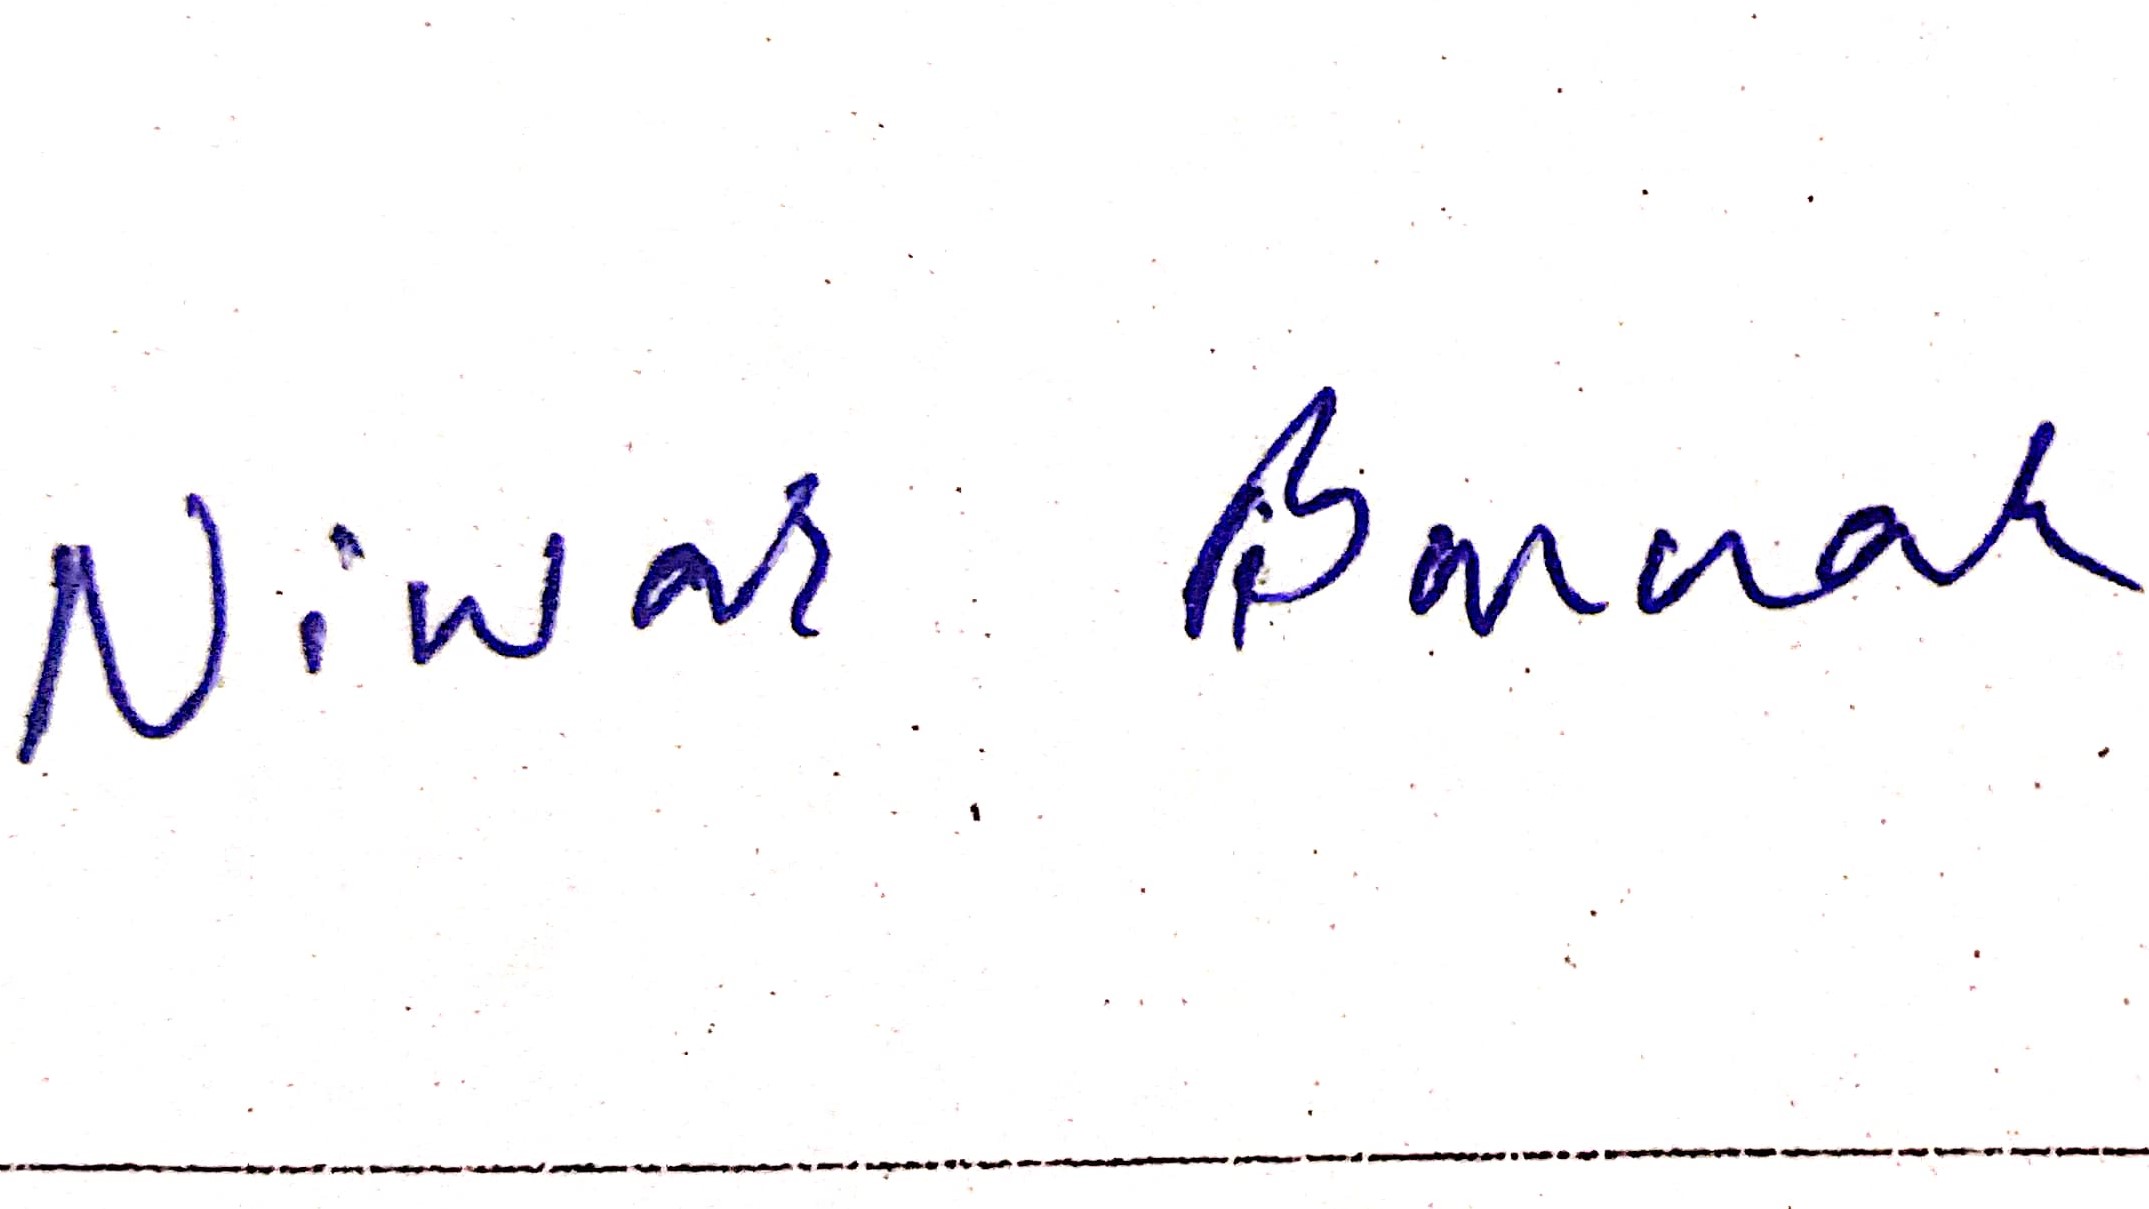 Niwas Barman